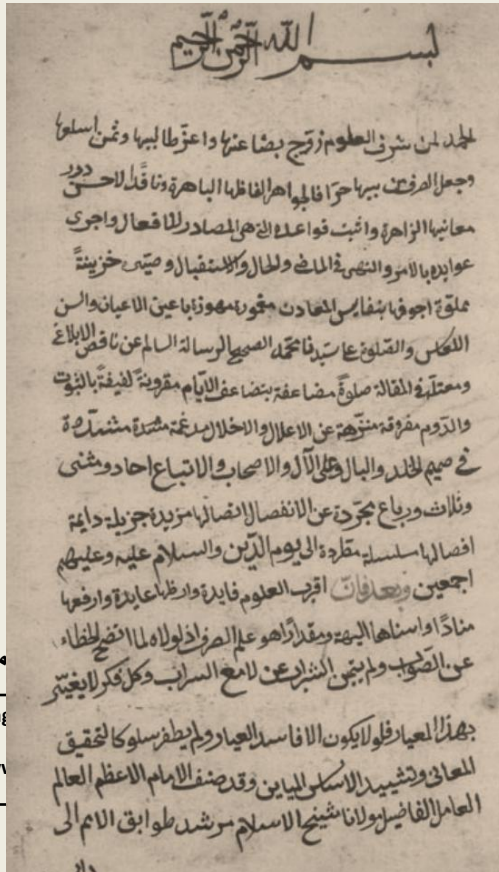 بسم الله الرحمن الرحيم
الحمد لمن شرف العلوم زوج بضاعتها واعز طالبيها وثمن اسلوبها
وجعل الصرف من بينها حرا فالجواهر الفاظها الباهرة وناقدا لاحسن درر
معانيها الزاهرة واثبت قواعده التي هي المصادر للافعال واجرى
عوايده بالامر والنهى في الماضى والحال والاستقبال وصيّر خزينةً
مملوّة اجوفها بنفايس المعادن مهموزة باعين الاعيان والسن
والصلوة على سيدنا محمد الصحيح الرسالة السالم عن ناقص الابلاغ
ومعتلّ المقالة صلوةً مضاعفة بتضاعف الايام مقرونةً لفيفةً بالثبوت
والدوم مفروقة منزّهة عن الاعلال والاخلال مدغمة مشددة
في صميم الخلد والبال وعلى الآل والاصحاب والاتباع احاد ومثنى
وثلاث ورباع مجرّدة عن الانفصال اتصالها مزيدة جزيلة دايمة
افصالها سلسلة مطردة الى يوم الدّين والسلام عليه وعليهم
اجمعين وبعد فانّ اقرب العلوم فايدة عايدة وارفعها
منارًا واسناها البهة ومقدارًا هو علم الصرف اذ لولاه لما اتضح الخطاء
عن الصّواب ولم يتبين الشراب عن لامع السراب وكل فكر لا يغيّر
بهذا المعيار فلو لا يكون الا فاسد العيار ولم يظفر سلوكا لتحقيق
المعانى وتشييد الاساس المباين وقد صنف الامام الاعظم العالم
العامل الفاضل مولانا شيخ الاسلام مرشد طوايق الامم الى